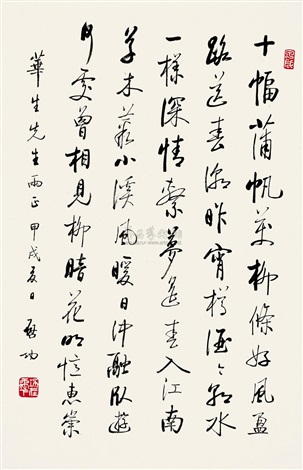 十幅蒲帆萬柳條好風盈
路送春潮昨宵樽酒今朝水
一樣深情縈夢遙春入江南
草木藂小溪風暖日沖融臥遊
何處曾相見柳暗花明憶惠崇
華生先生雨正 甲戌夏日 啟功